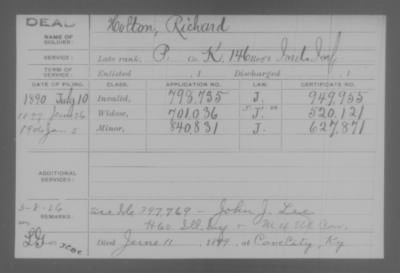 DEAD
NAME OF SOLDIER: Holton, Richard
SERVICE: Late rank, P. Co. K, 146 Reg't Ind. Inf.
TERM OF SERVICE: Enlisted , 1 Discharged , 1
DATE OF FILING. CLASS. APPLICATION NO. LAW. CERTIFICATE NO.
1890 July 10 Invalid, 793,755 J. 949,955
Widow, 701,036 J. 520,121
1906 Jan 2 Minor, 840,831 J. 627,871
ADDITIONAL SERVICES:
REMARKS: 797,769 - John J.
Died June 11, 1899, at Cave City, Ky